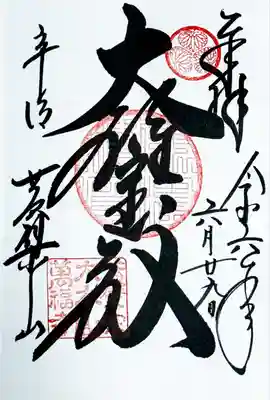 奉拝
令和六年
六月廿九日
大雄宝殿
宇治
黄檗山
萬福寺